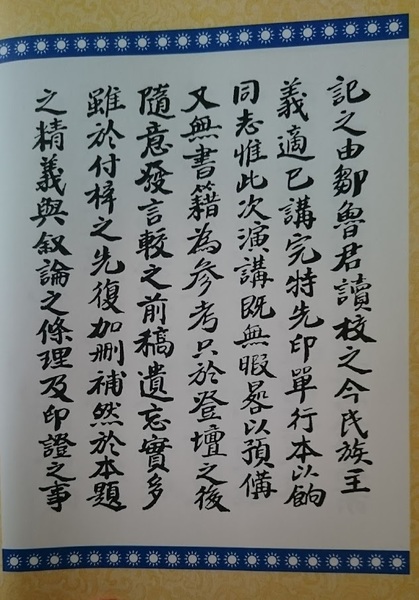 記之由鄒魯君讀校之今民族主
義適已講完特先印單行本以餉
同志惟此次演講既無暇晷以預備
又無書籍為參考只於登壇之後
隨意發言較之前稿遺忘實多
雖於付梓之先復加刪補然於本題
之精義與叙論之條理及印證之事